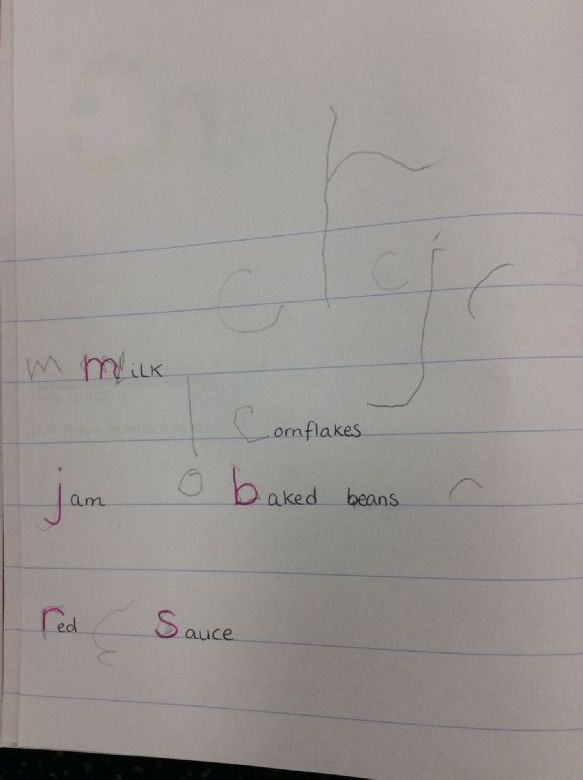 r
c c j r
m milk
Cornflakes
jam o baked beans
red sauce